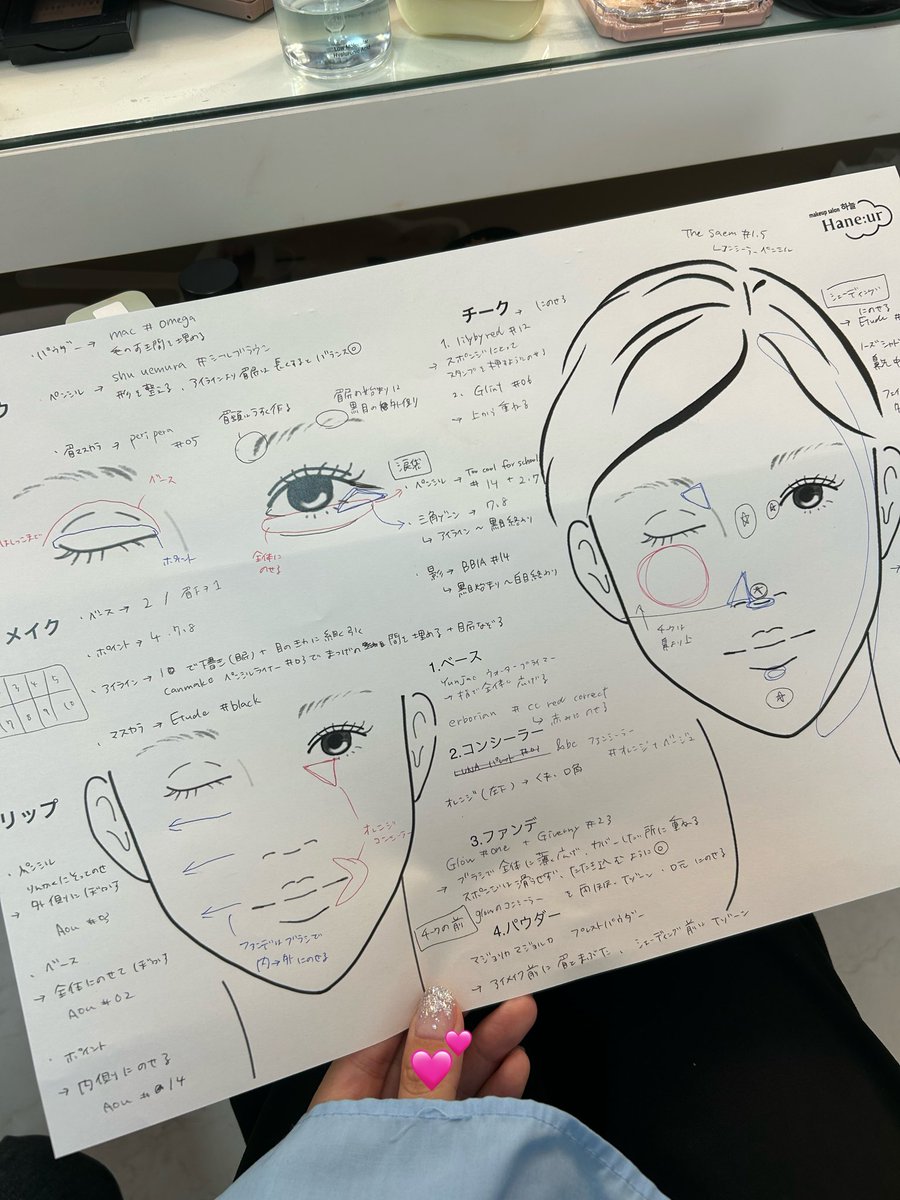 makeup salon 하늘
Hane:ur
The saem #1.5
シェーディング
にのせる
Etude #
・パウダー → mac # omega
毛の間を埋める
・ペンシル → shu uemura #シールブラウン
形を整える
バランス◎
・眉マスカラ → peripera #05
眉頭はうすく作る
眉尻の始まりは
ベース
ポイント
全体に
のせる
涙袋
チーク → にのせる
1. lilybyred #12
→ スポンジにとって
2. Glint #06
→ 上から重ねる
・ペンシル → Too cool for school
#14 + 2.7
・三角ゾーン → 7.8
↳ アイライン～黒目終わり
・影 → BBIA #14
↳ 黒目始まり～白目終わり
チークは
メイク
・ベース → 2 / 眉下 → 1
・ポイント → 4.7.8
・アイライン → 10で下書き
canmake ペンシルライナー #03で まつげの間を埋める + 目尻なぞる
・マスカラ → Etude #black
3 4 5
7 8 9 10
リップ
・ペンシル
りんかくにそってのせ
→ 外側にぼかす
Aou #03
・ベース
→ 全体にのせてぼかす
Aou #02
・ポイント
→ 内側にのせる
Aou #14
オレンジ
コンシーラー
ファンデはブラシで
内→外にのせる
1.ベース
Yunjac ウォータープライマー
→ 指で全体に広げる
erborian # cc red correct
↳ 赤みにのせる
2.コンシーラー
#オレンジ+ベージュ
オレンジ(左下) → くま、口角
3.ファンデ
Glow #one + Givenchy #23
→ ブラシで全体に薄く広げ、カバーしたい所に重ねる
スポンジは滑らせず、たたき込むように◎
glowのコンシーラーを両ほほ、Tゾーン・口元にのせる
チークの前
4.パウダー
マジョリカマジョルカ プレストパウダー
→ アイメイク前に眉とまぶた、シェーディング前にTゾーン